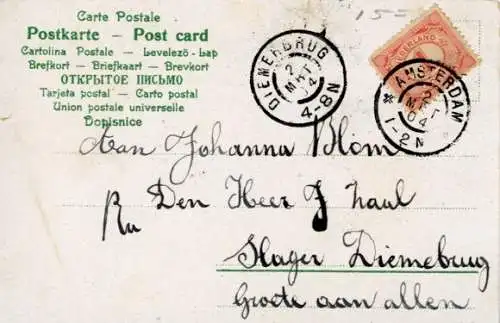 Carte Postale
Postkarte - Post card
Cartolina Postale - Levelező-Lap
Brefkort - Briefkaart - Brevkort
ОТКРЫТОЕ ПИСЬМО
Tarjeta postal - Carto postal
Union postale universelle
Dopisnice
15=
DIEMERBRUG
2
MRT
04
4-8N
NEDERLAND
AMSTERDAM
2
MRT
04
1-2N
Aan Johanna Blom
Den Heer J
Slager Diemebrug
Groete aan allen